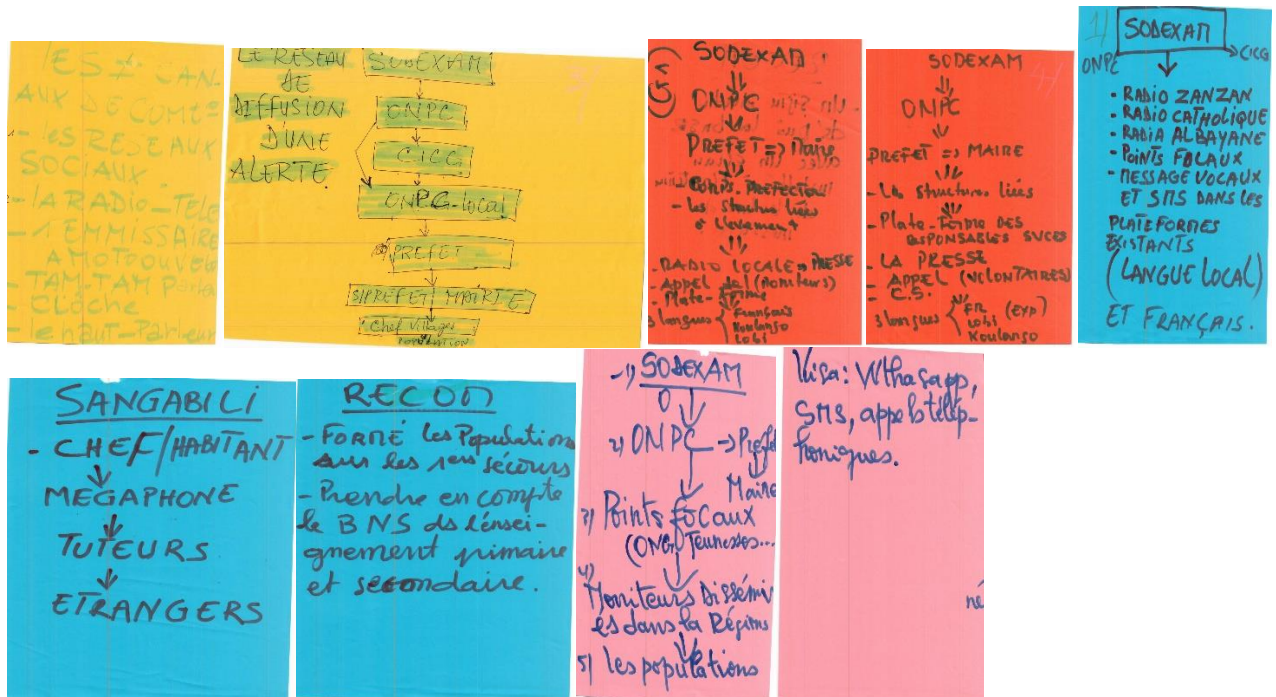 LES ≠ CAN-
AUX DE COMt°
- LES RESEAUX
SOCIAUX
- LA RADIO_TELE
- 1 EMMISSAIRE
- TAM-TAM
- Cloche
- le haut-Parleur
LE RESEAU
DE
DIFFUSION
D'UNE
ALERTE.
3/
SODEXAM
ONPC
CICG
ONPC-local
PREFET
S/PREFET MAIRIE
Chef villages
POPULATION
SODEXAM
ONPC
PREFET => Maire
- les structures liées
- RADIO LOCALE => PRESSE
- APPEL (Moniteurs)
- Plate-forme
3 langues
Français
Koulango
Lobi
4/
SODEXAM
ONPC
PREFET => MAIRE
- Les structures liées
- Plate-forme DES
RESPONSABLES
- LA PRESSE
- APPEL (VOLONTAIRES)
- C.S.
3 langues
FR (EXP)
Lobi
Koulango
1/
SODEXAM
ONPC
CICG
- RADIO ZANZAN
- RADIO CATHOLIQUE
- RADIA ALBAYANE
- POINTS FOCAUX
- MESSAGE VOCAUX
ET SMS DANS LES
PLATEFORMES
EXISTANTS
(LANGUE LOCAL)
ET FRANÇAIS.
SANGABILI
- CHEF/HABITANT
MEGAPHONE
TUTEURS
ETRANGERS
RECOM
- FORMÉ les Populations
sur les 1ers sécours
- Prendre en compte
le BNS ds l'ensei-
gnement primaire
et secondaire.
-1) SODEXAM
2) ONPC -> Préfet
Maire
3) Points Focaux
(ONG, Jeunesses...
4)
Moniteurs Dissémin
és dans la Régions
5) les populations
Visa: Wthasapp,
SMS, appels télép-
honiques.
né